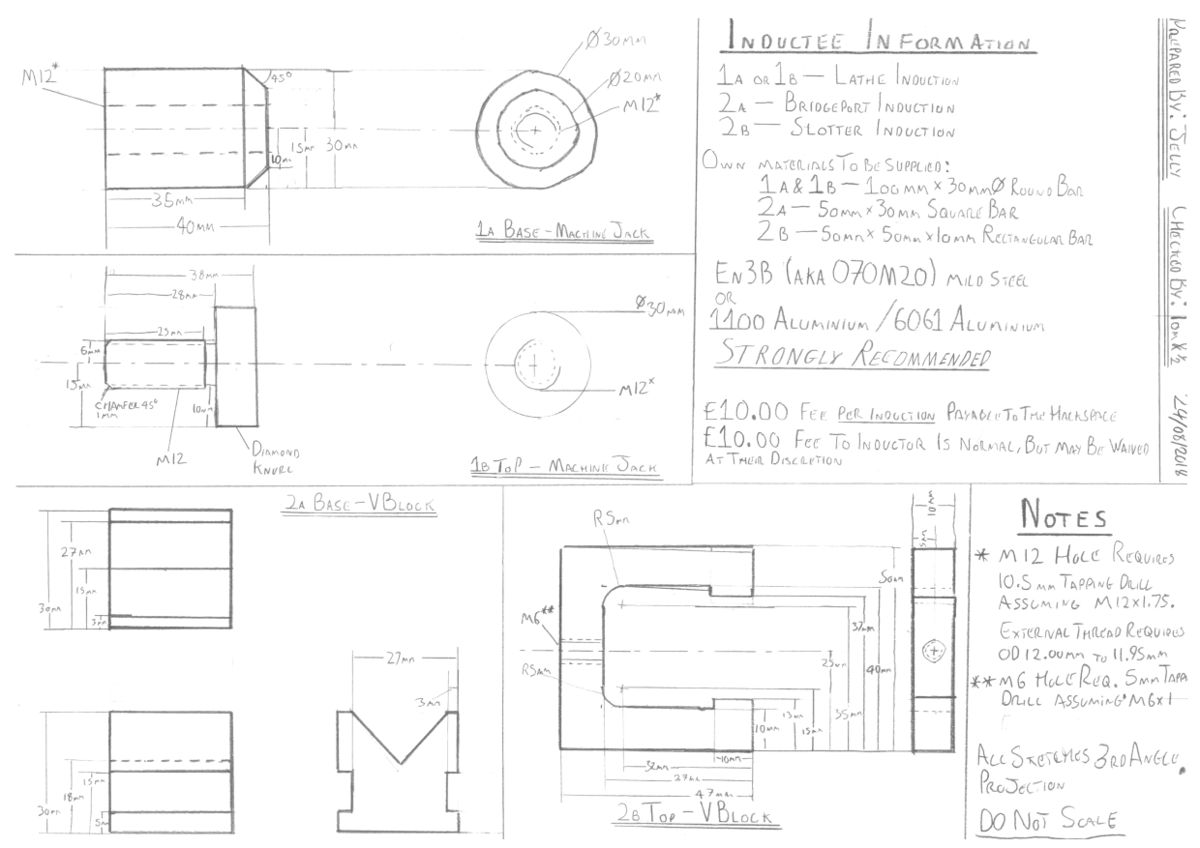 M12*
45°
Ø30mm
Ø20mm
M12*
15mm
30mm
10mm
35mm
40mm
1A BASE - MACHINE JACK
38mm
28mm
25mm
6mm
15mm
CHAMFER 45°
1mm
10mm
M12
DIAMOND
KNURL
Ø30mm
M12*
1B TOP - MACHINE JACK
INDUCTEE INFORMATION
1A OR 1B — LATHE INDUCTION
2A — BRIDGEPORT INDUCTION
2B — SLOTTER INDUCTION
OWN MATERIALS TO BE SUPPLIED:
1A & 1B — 100mm × 30mmØ ROUND BAR
2A — 50mm × 30mm SQUARE BAR
2B — 50mm × 50mm × 10mm RECTANGULAR BAR
EN3B (AKA 070M20) MILD STEEL
OR
1100 ALUMINIUM / 6061 ALUMINIUM
STRONGLY RECOMMENDED
£10.00 FEE PER INDUCTION PAYABLE TO THE HACKSPACE
£10.00 FEE TO INDUCTOR IS NORMAL, BUT MAY BE WAIVED
AT THEIR DISCRETION
PREPARED BY: JELLY CHECKED BY: 24/08/2018
2A BASE - V BLOCK
27mm
15mm
30mm
3mm
27mm
3mm
15mm
18mm
30mm
5mm
R5mm
M6**
R5mm
10mm
5mm
50mm
37mm
25mm
40mm
35mm
13mm
15mm
10mm
10mm
32mm
37mm
47mm
2B TOP - V BLOCK
NOTES
* M12 HOLE REQUIRES
10.5mm TAPPING DRILL
ASSUMING M12x1.75.
EXTERNAL THREAD REQUIRES
OD 12.00mm TO 11.95mm
** M6 HOLE REQ. 5mm TAPP
DRILL ASSUMING M6x1
ALL SKETCHES 3RD ANGLE
PROJECTION
DO NOT SCALE